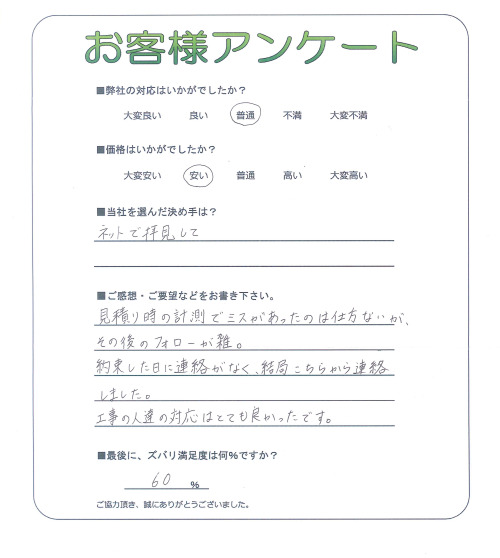 お客様アンケート
■弊社の対応はいかがでしたか？
大変良い 良い 普通 不満 大変不満
■価格はいかがでしたか？
大変安い 安い 普通 高い 大変高い
■当社を選んだ決め手は？
ネットで拝見して
■ご感想・ご要望などをお書き下さい。
見積り時の計測でミスがあったのは仕方ないが、
その後のフォローが雑。
約束した日に連絡がなく、結局こちらから連絡
しました。
工事の人達の対応はとても良かったです。
■最後に、ズバリ満足度は何%ですか？
60 %
ご協力頂き、誠にありがとうございました。